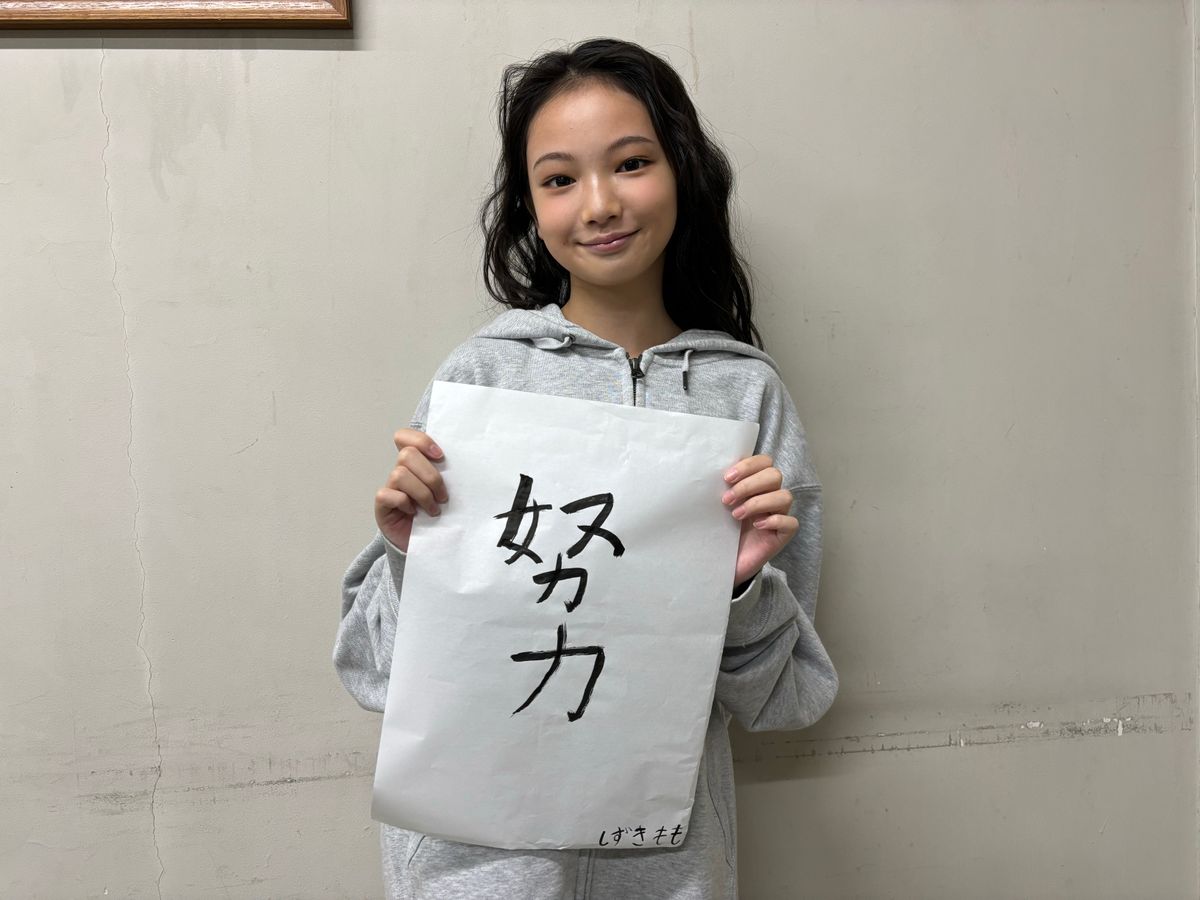 努力
しずき もも